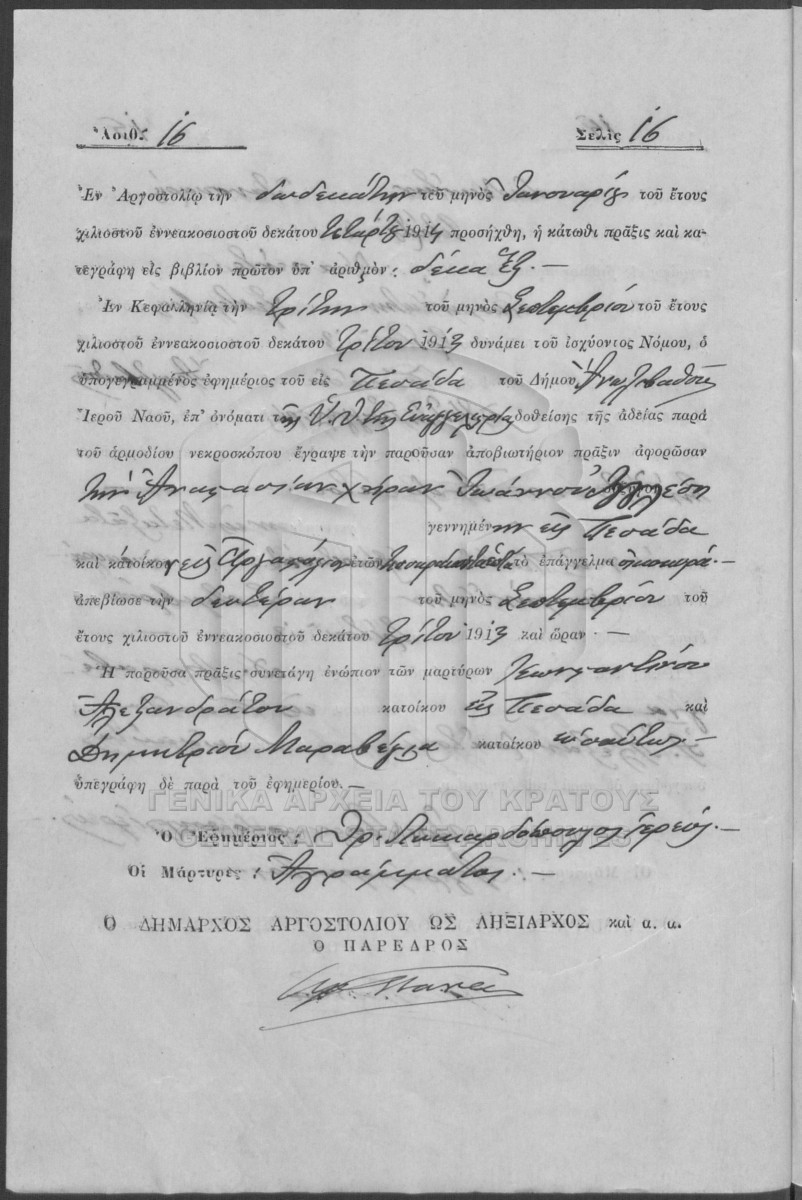 Ἀριθ. 16 Σελὶς 16
Ἐν Ἀργοστολίῳ τὴν δωδεκάτην τοῦ μηνὸς Ἰανουαρίου τοῦ ἔτους
χιλιοστοῦ ἐννεακοσιοστοῦ δεκάτου τετάρτου 1914 προσήχθη, ἡ κάτωθι πρᾶξις καὶ κα-
τεγράφη εἰς βιβλίον πρῶτον ὑπ' ἀριθμὸν: δέκα ἕξ.—
Ἐν Κεφαλληνίᾳ τὴν Τρίτην τοῦ μηνὸς Σεπτεμβρίου τοῦ ἔτους
χιλιοστοῦ ἐννεακοσιοστοῦ δεκάτου Τρίτου 1913 δυνάμει τοῦ ἰσχύοντος Νόμου, ὁ
ὑπογεγραμμένος ἐφημέριος τοῦ εἰς Πεσάδα τοῦ Δήμου
Ἱεροῦ Ναοῦ, ἐπ' ὀνόματι τῆς Υ. Θ. τῆς Εὐαγγελιστρίας δοθείσης τῆς ἀδείας παρὰ
τοῦ ἁρμοδίου νεκροσκόπου ἔγραψε τὴν παροῦσαν ἀποβιωτήριον πρᾶξιν ἀφορῶσαν
τὴν Ἀναστασίαν χήραν Ἰωάννου
γεννημένην εἰς Πεσάδα
καὶ κάτοικον εἰς ἐτῶν τὸ ἐπάγγελμα οἰκοκυρά.—
ἀπεβίωσε τὴν δευτέραν τοῦ μηνὸς Σεπτεμβρίου τοῦ
ἔτους χιλιοστοῦ ἐννεακοσιοστοῦ δεκάτου Τρίτου 1913 καὶ ὥραν.—
Ἡ παροῦσα πρᾶξις συνετάγη ἐνώπιον τῶν μαρτύρων Κωνσταντίνου
Ἀλεξανδράτου κατοίκου εἰς Πεσάδα καὶ
Δημητρίου Μαραβέγια κατοίκου ὡσαύτως
ὑπεγράφη δὲ παρὰ τοῦ ἐφημερίου.—
ΓΕΝΙΚΑ ΑΡΧΕΙΑ ΤΟΥ ΚΡΑΤΟΥΣ
GENERAL STATE ARCHIVES
Ὁ Ἐφημέριος: ἱερεύς.—
Οἱ Μάρτυρες: Ἀγράμματοι.—
Ο ΔΗΜΑΡΧΟΣ ΑΡΓΟΣΤΟΛΙΟΥ ΩΣ ΛΗΞΙΑΡΧΟΣ καὶ α. α.
Ο ΠΑΡΕΔΡΟΣ